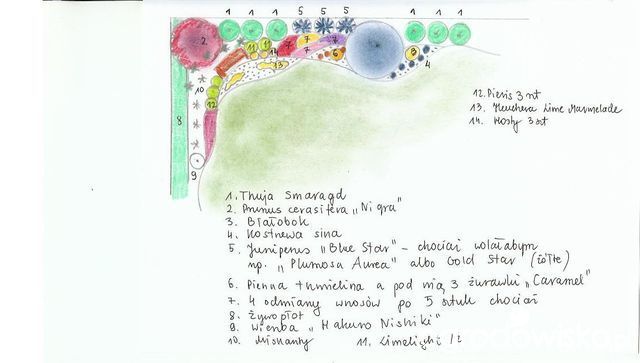 1 1 1 5 5 5 1 1 1
2
11 11
7 7 7
6
3
14
13
4
10
12
8
9
12. Pieris 3 szt
13. Heuchera Lime Marmelade
14. Hosty 3 szt
1. Thuja Smaragd
2. Prunus cerasifera "Nigra"
3. Białobok
4. Kostrzewa sina
5. Juniperus "Blue Star" - chociaż wolałabym
np. "Plumosa Aurea" albo Gold Star (żółte)
6. Pienna trzmielina a pod nią 3 żurawki "Caramel"
7. 4 odmiany wrzosów po 5 sztuk chociaż
8. Żywopłot
9. Wierzba "Hakuro Nishiki"
10. Miskanty 11. Limelight /2